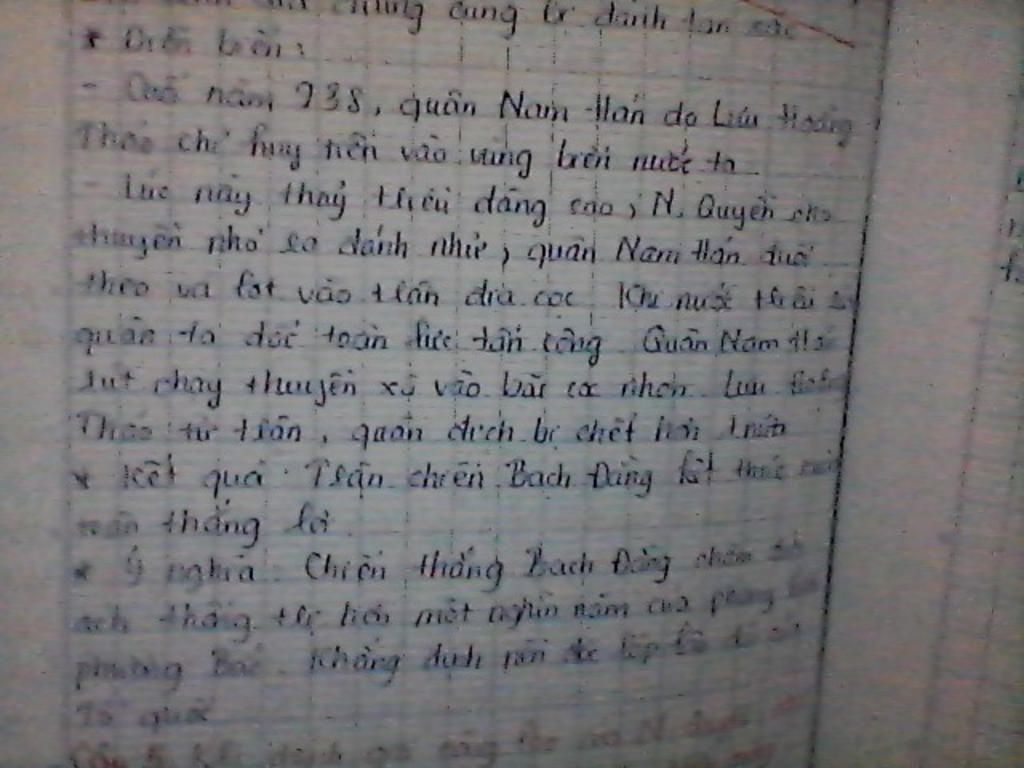 chúng cũng bị đánh tan
* Diễn biến:
- năm 938, quân Nam Hán do Lưu Hoằng
Tháo chỉ huy tiến vào vùng biển nước ta
- Lúc này thuỷ triều dâng cao, N. Quyền cho
thuyền nhỏ ra đánh nhử, quân Nam Hán đuổi
theo và lọt vào trận địa cọc Khi nước triều
quân ta dốc toàn lực tấn công Quân Nam
rút chạy thuyền xô vào bãi cọc nhọn Lưu
Tháo tử trận, quân địch bị chết hơn
* Kết quả: Trận chiến Bạch Đằng kết thúc
toàn thắng lợi
* Ý nghĩa: Chiến thắng Bạch Đằng chấm
ách thống trị hơn một nghìn năm của phong
phương Bắc. Khẳng định nền độc lập
Tổ quốc
Câu 5. đánh giá công lao của N.